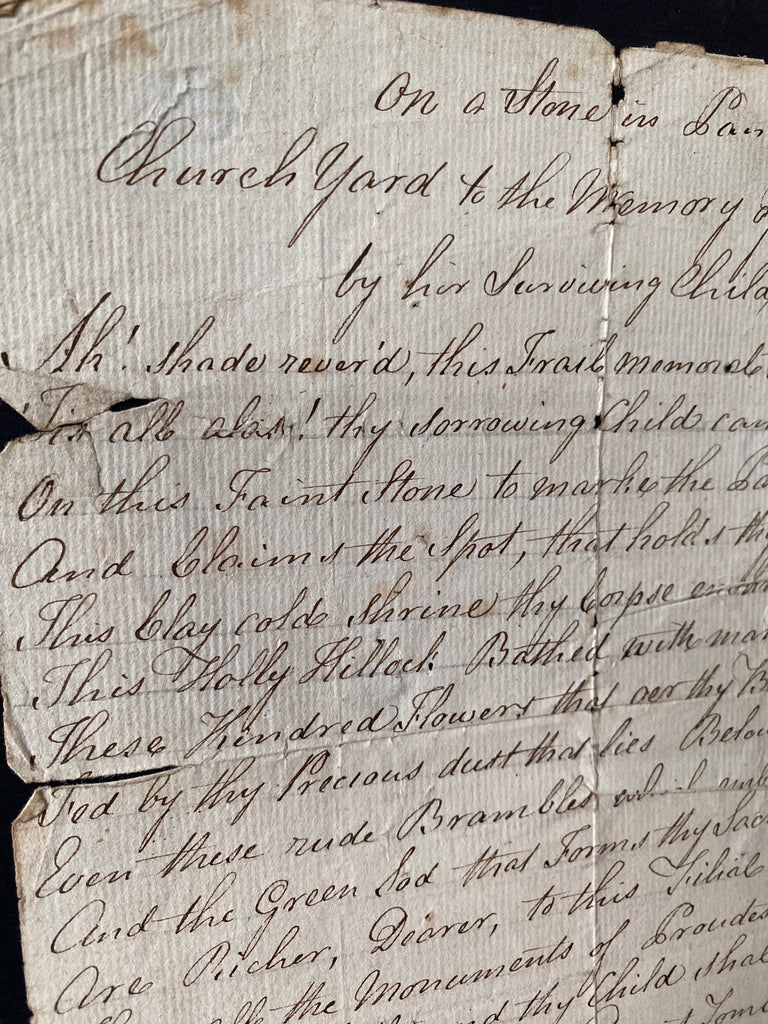 On a Stone in
Church Yard to the Memory
by her Surviving Child
Ah! shade rever'd, this Frail memorial
Tis all alas! thy sorrowing Child can
On this Faint Stone to marke the
And Claims the Spot, that holds thy
This Clay cold shrine thy Corpse
This Holly Hillock Bathed with
These Kindred Flowers that oer thy
Fed by thy Precious dust that lies Below
Even these rude Brambles
And the Green Sod that Forms thy
Are Richer, Dearer, to this Filial
the Monuments of Proudest
thy Child shall